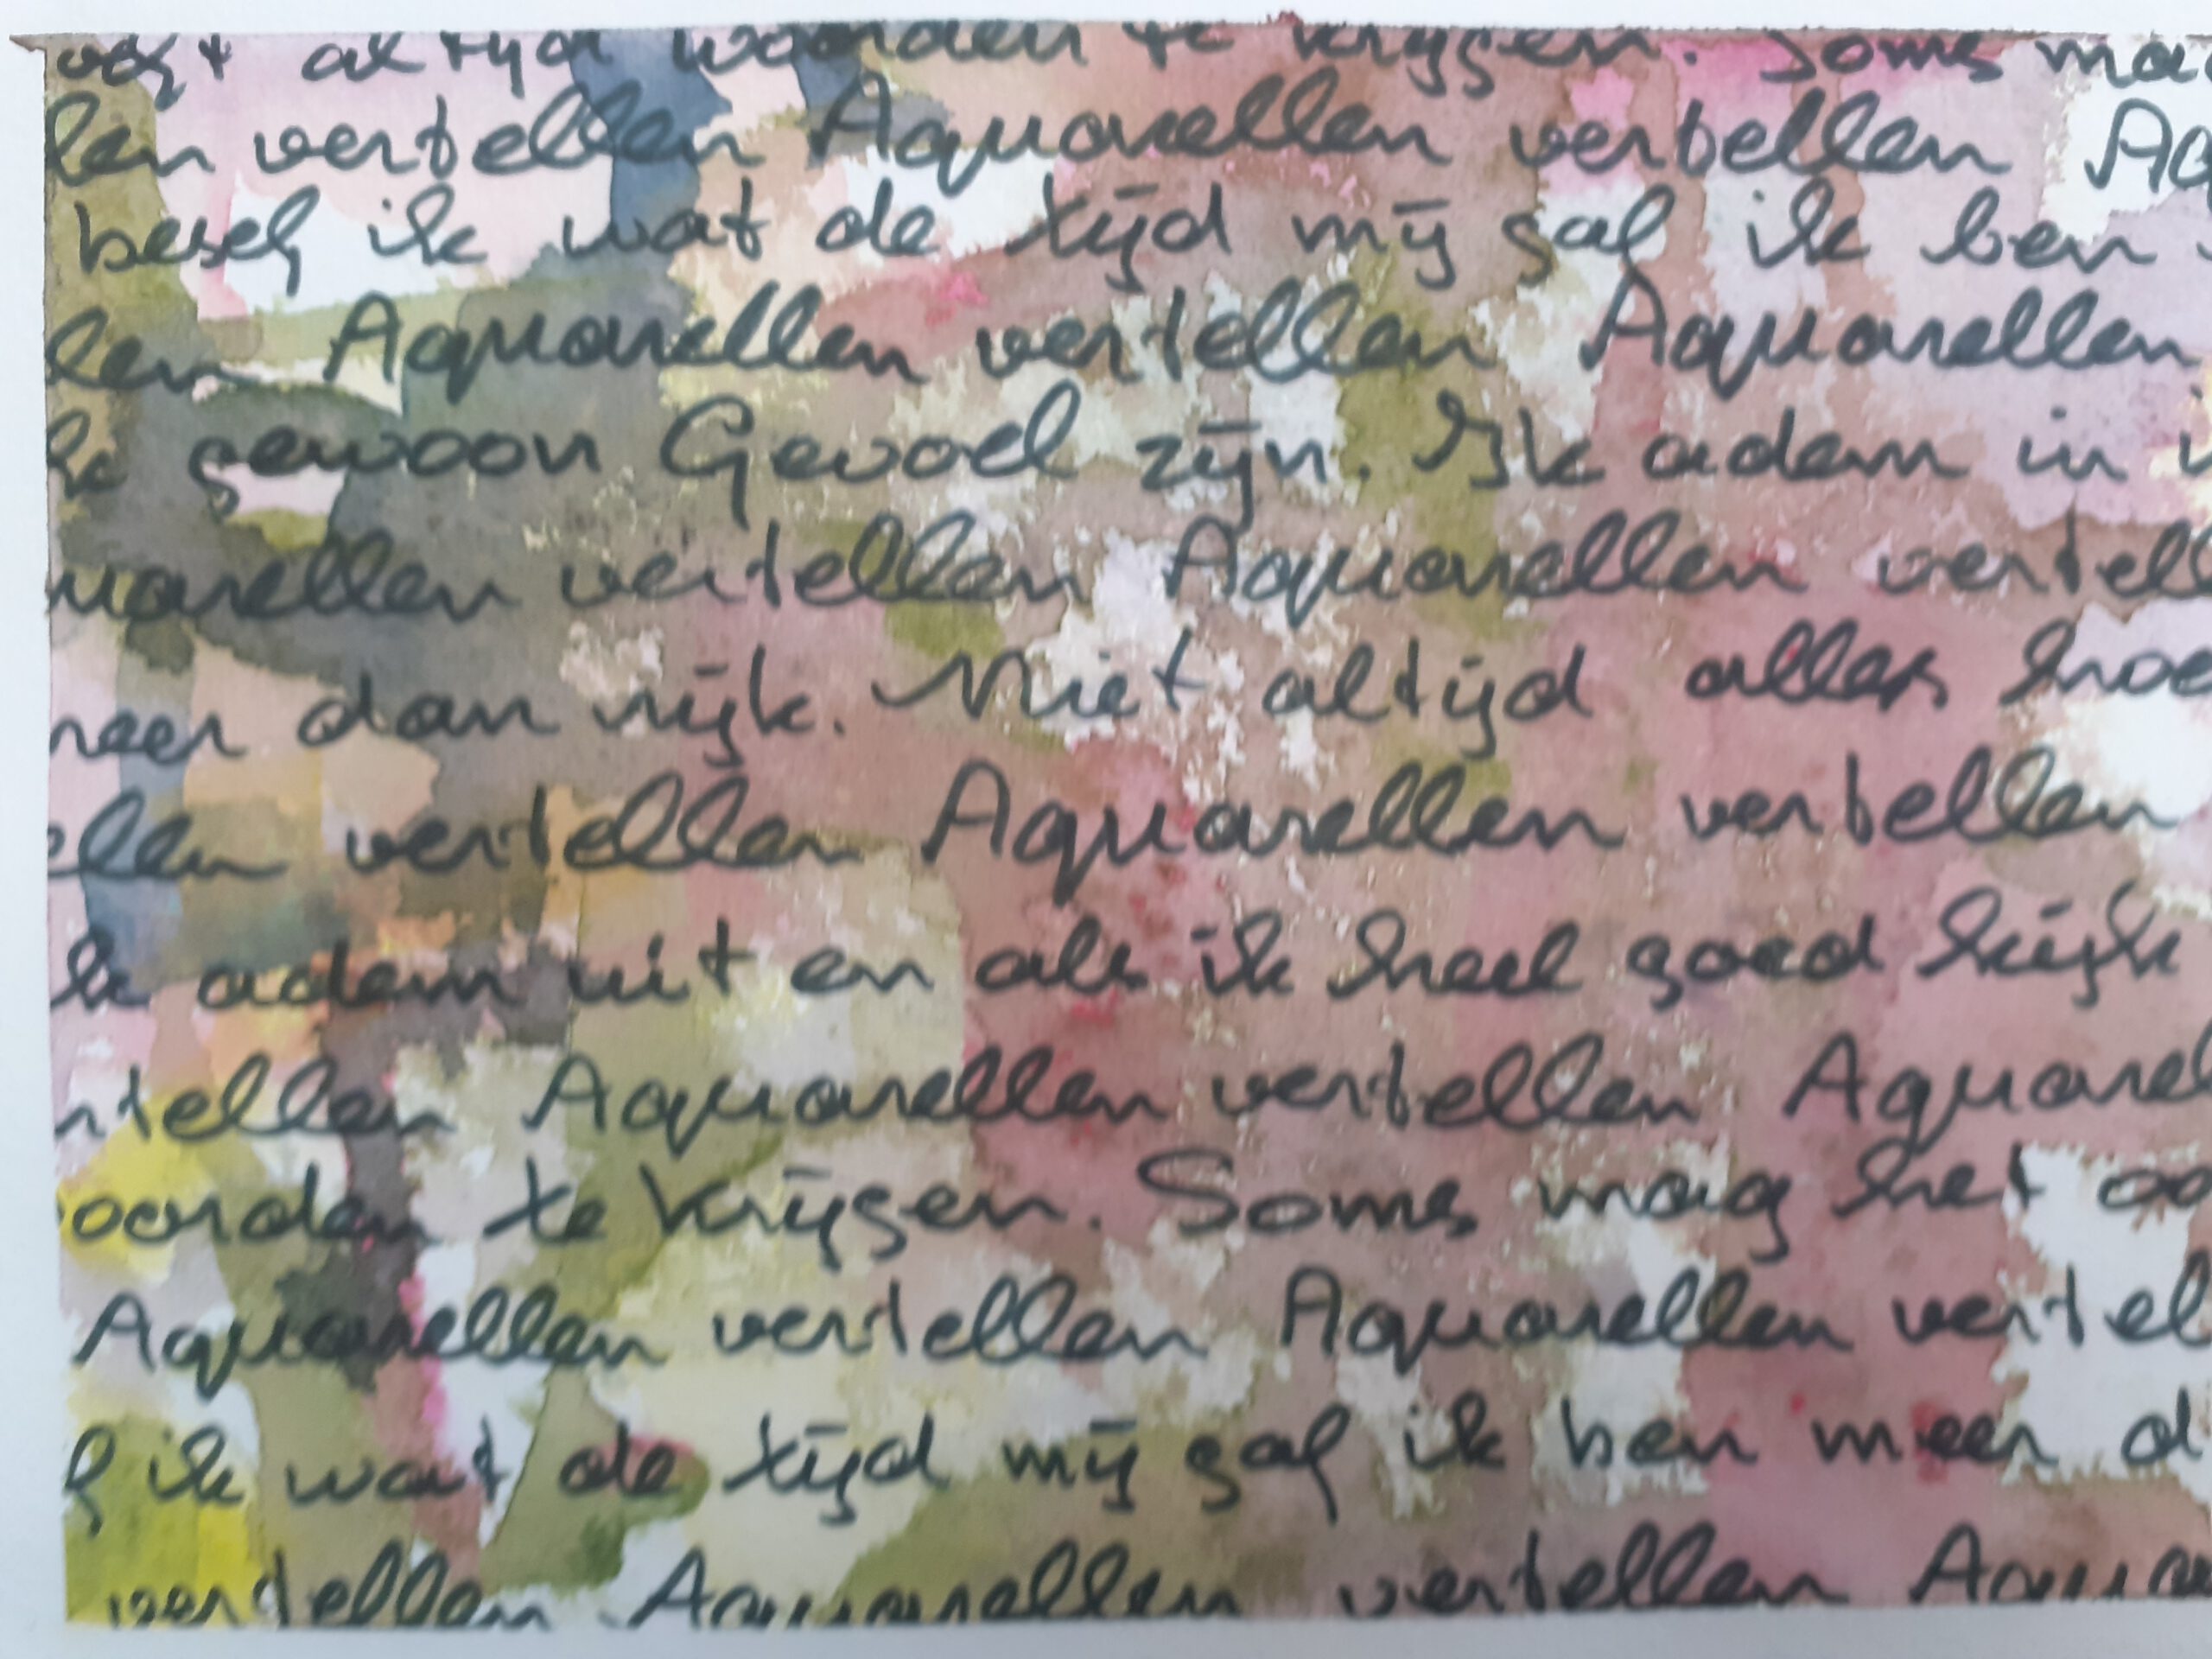 altijd woorden te krijgen. Soms ma
len vertellen Aquarellen vertellen Aq
besef ik wat de tijd mij gaf ik ben
len Aquarellen vertellen Aquarellen
ik gewoon Gevoel zijn. Ik adem in
uarellen vertellen Aquarellen vertell
meer dan rijk. Niet altijd alles hoe
ellen vertellen Aquarellen vertellen
ik adem uit en als ik heel goed kijk
rtellen Aquarellen vertellen Aquarel
oorden te krijgen. Soms mag het oo
Aquarellen vertellen Aquarellen vertel
f ik wat de tijd mij gaf ik ben meer d
vertellen Aquarellen vertellen Aquar